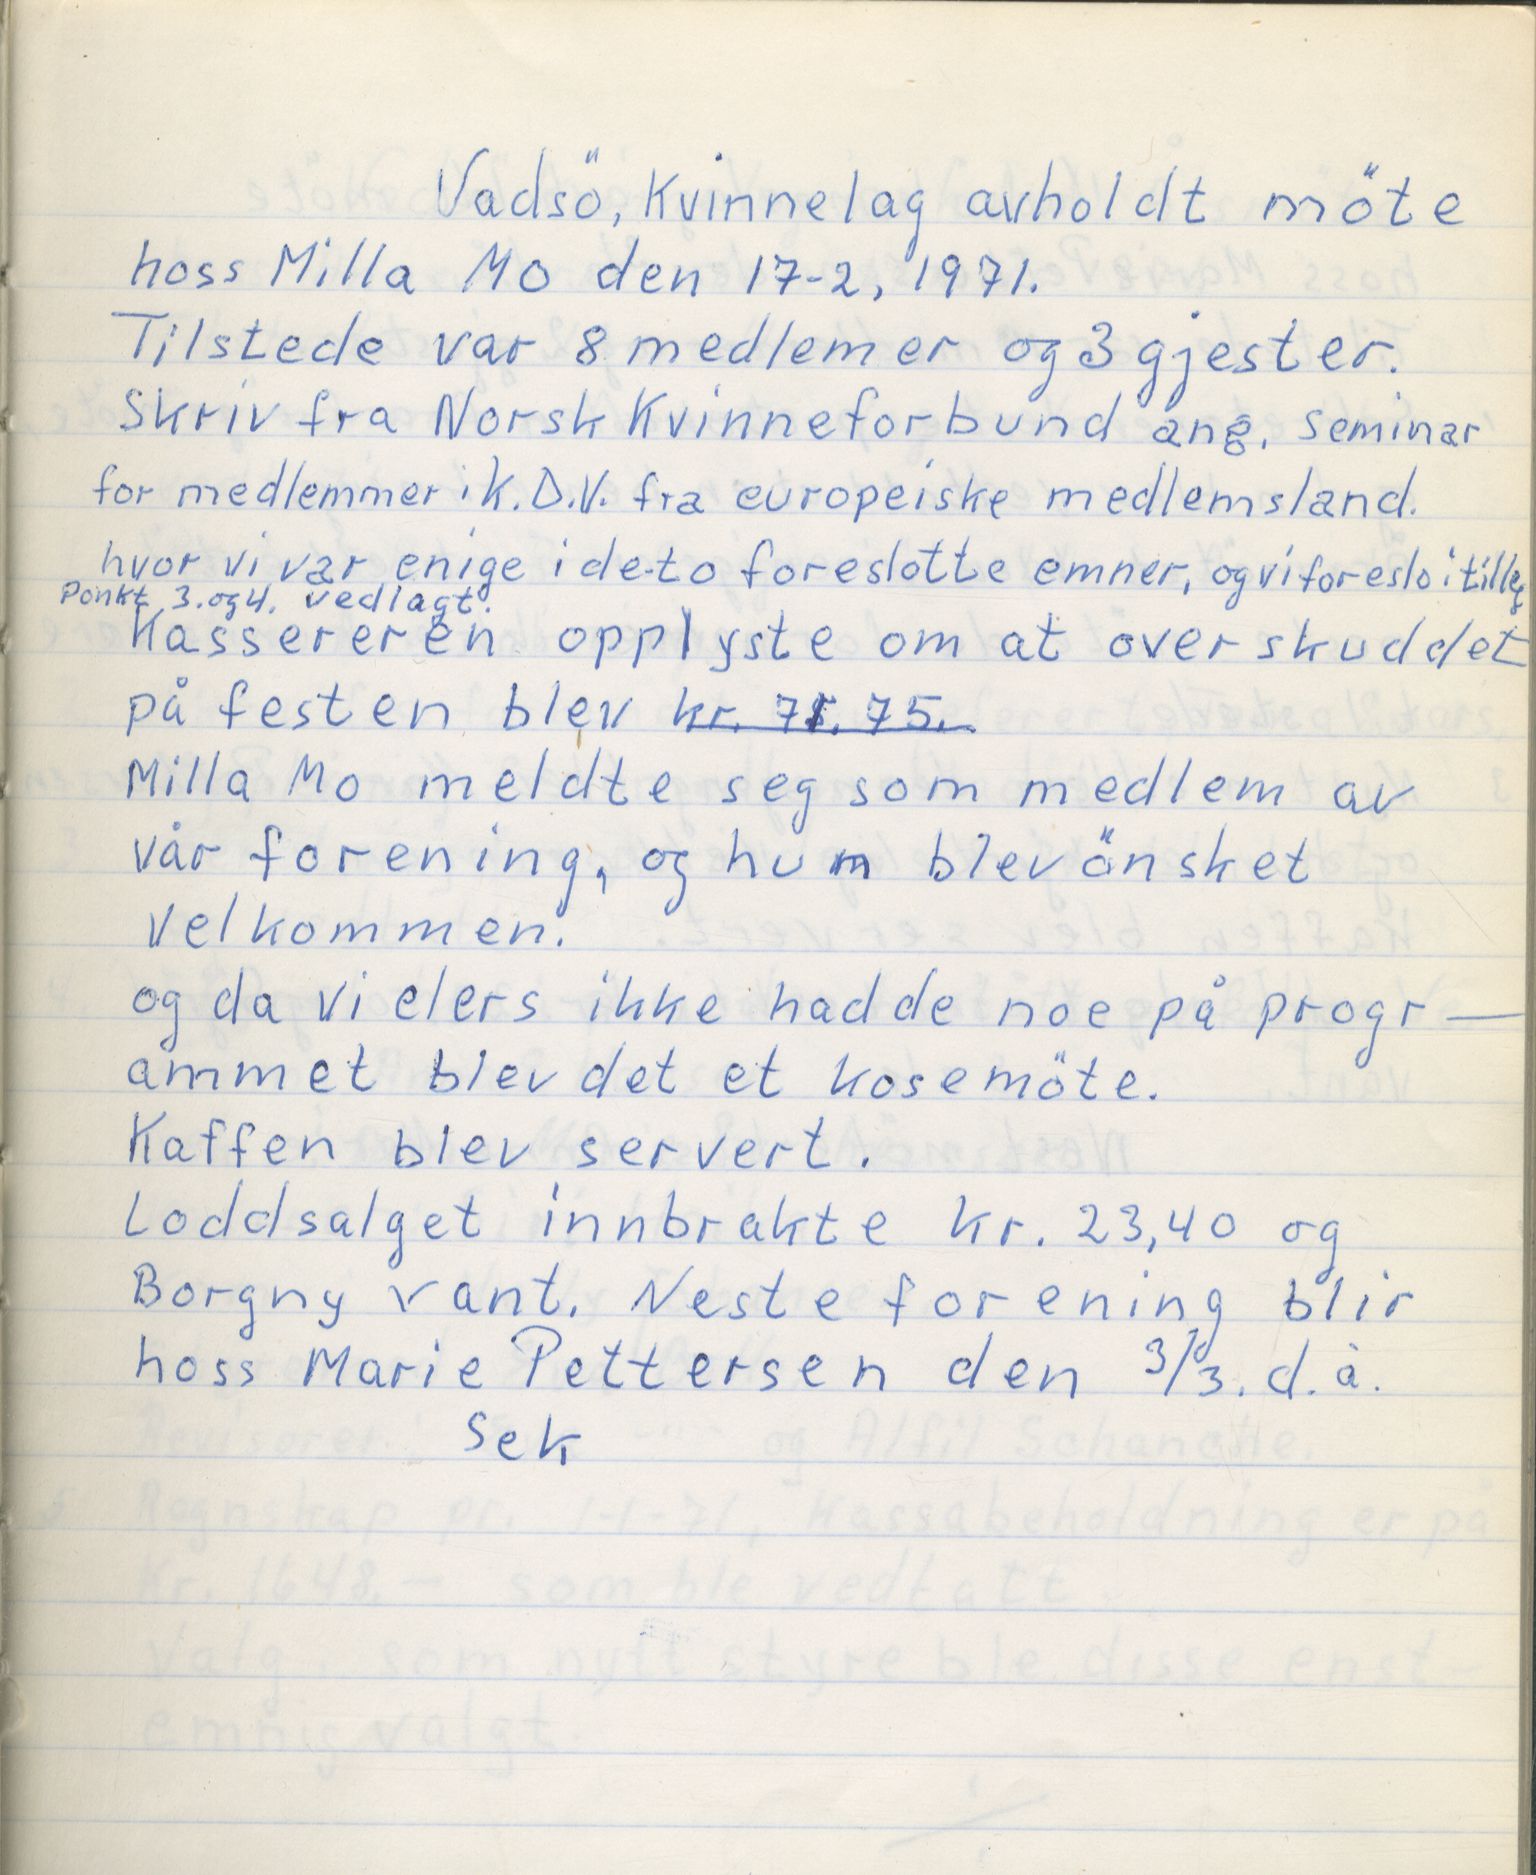 Vadsö, Kvinnelag avholdt möte
hoss Milla Mo den 17-2, 1971.
Tilstede var 8 medlemer og 3 gjester.
Skriv fra Norsk Kvinneforbund ang. seminar
for medlemmer i K.D.V. fra europeiske medlemsland.
hvor vi var enige i de to foreslotte emner, og vi foreslo i tilleg
Ponkt 3. og 4. vedlagt.
Kassereren opplyste om at overskuddet
på festen blev kr. 75.
Milla Mo meldte seg som medlem av
vår forening, og hun blev önsket
velkommen.
og da vi elers ikke hadde noe på progr—
ammet blev det et kosemöte.
Kaffen blev servert.
Loddsalget innbrakte kr. 23,40 og
Borgny vant. Neste forening blir
hoss Marie Pettersen den 3/3. d.å.
Sek